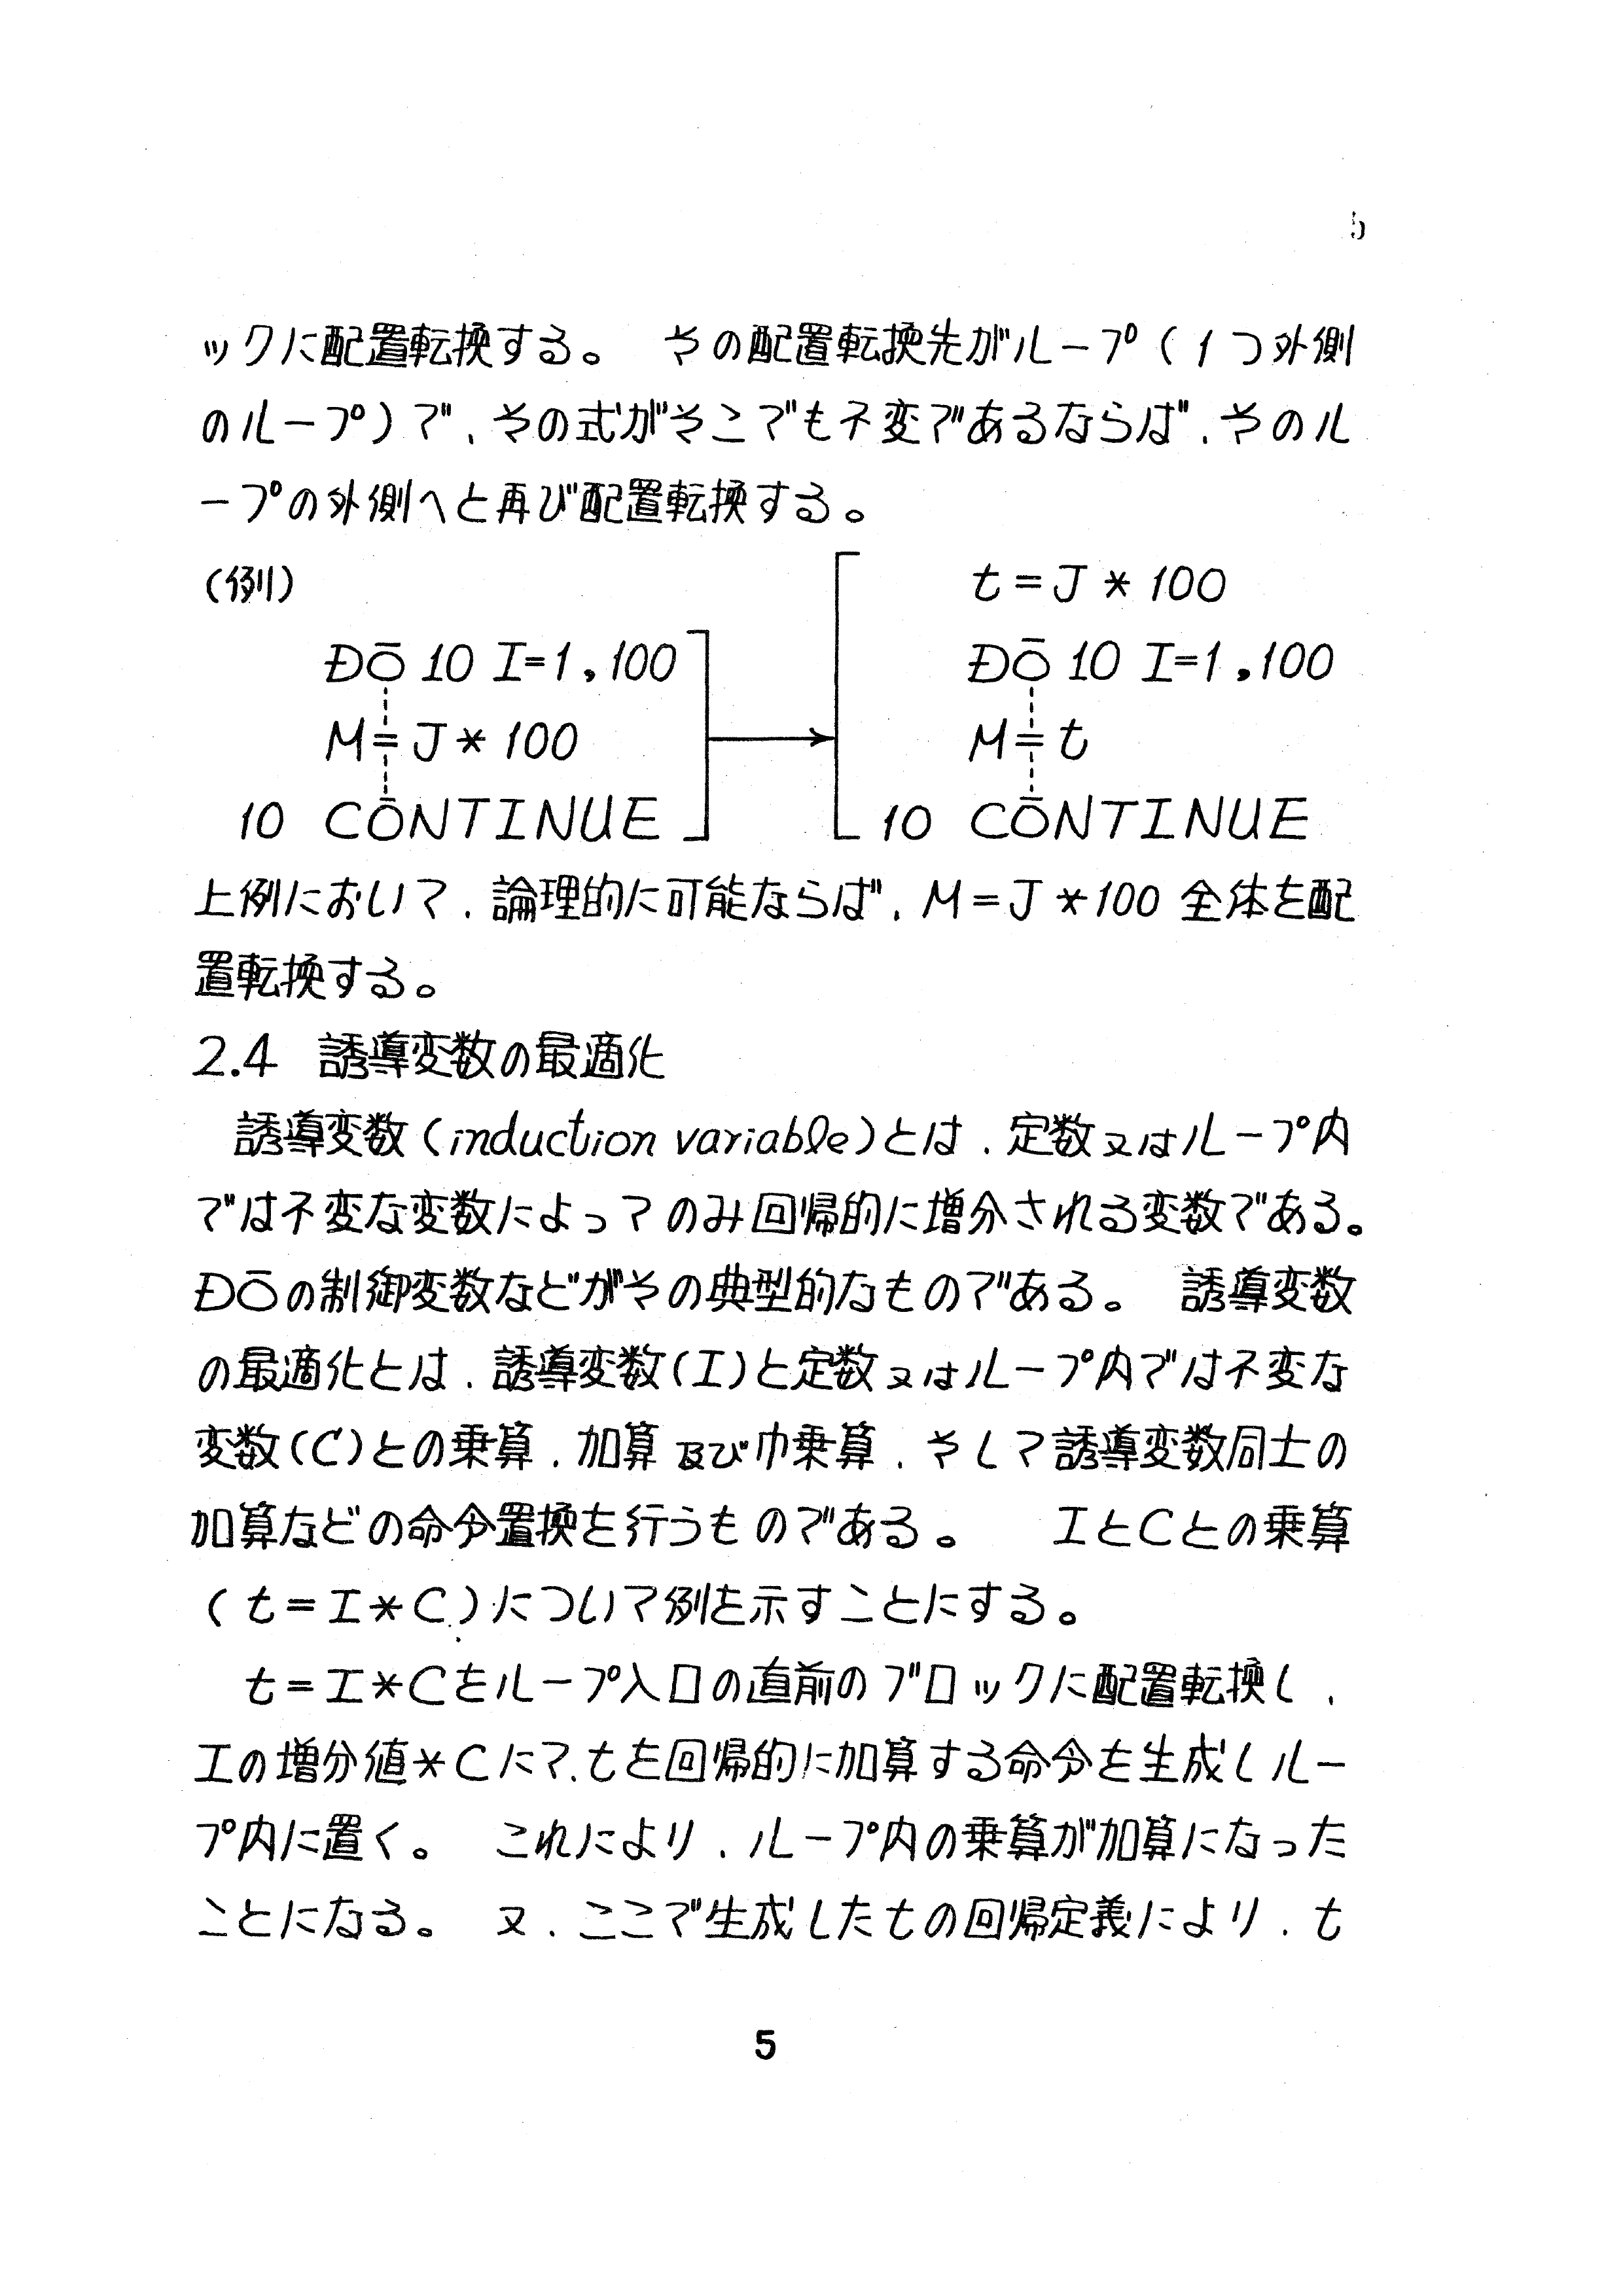 5
ックに配置転換する。 その配置転換先がループ(1つ外側
のループ)で、その式がそこでも不変であるならば、そのル
ープの外側へと再び配置転換する。
(例)
t=J*100
DO 10 I=1,100
DO 10 I=1,100
M=J*100
M=t
10 CONTINUE
10 CONTINUE
上例において、論理的に可能ならば、M=J*100 全体を配
置転換する。
2.4 誘導変数の最適化
誘導変数(induction variable)とは、定数又はループ内
では不変な変数によってのみ回帰的に増分される変数である。
DOの制御変数などがその典型的なものである。 誘導変数
の最適化とは、誘導変数(I)と定数又はループ内では不変な
変数(C)との乗算、加算及び巾乗算、そして誘導変数同士の
加算などの命令置換を行うものである。 IとCとの乗算
(t=I*C)について例を示すことにする。
t=I*Cをループ入口の直前のブロックに配置転換し、
Iの増分値*Cにて、tを回帰的に加算する命令を生成しルー
プ内に置く。 これにより、ループ内の乗算が加算になった
ことになる。 又、ここで生成したtの回帰定義により、t
5